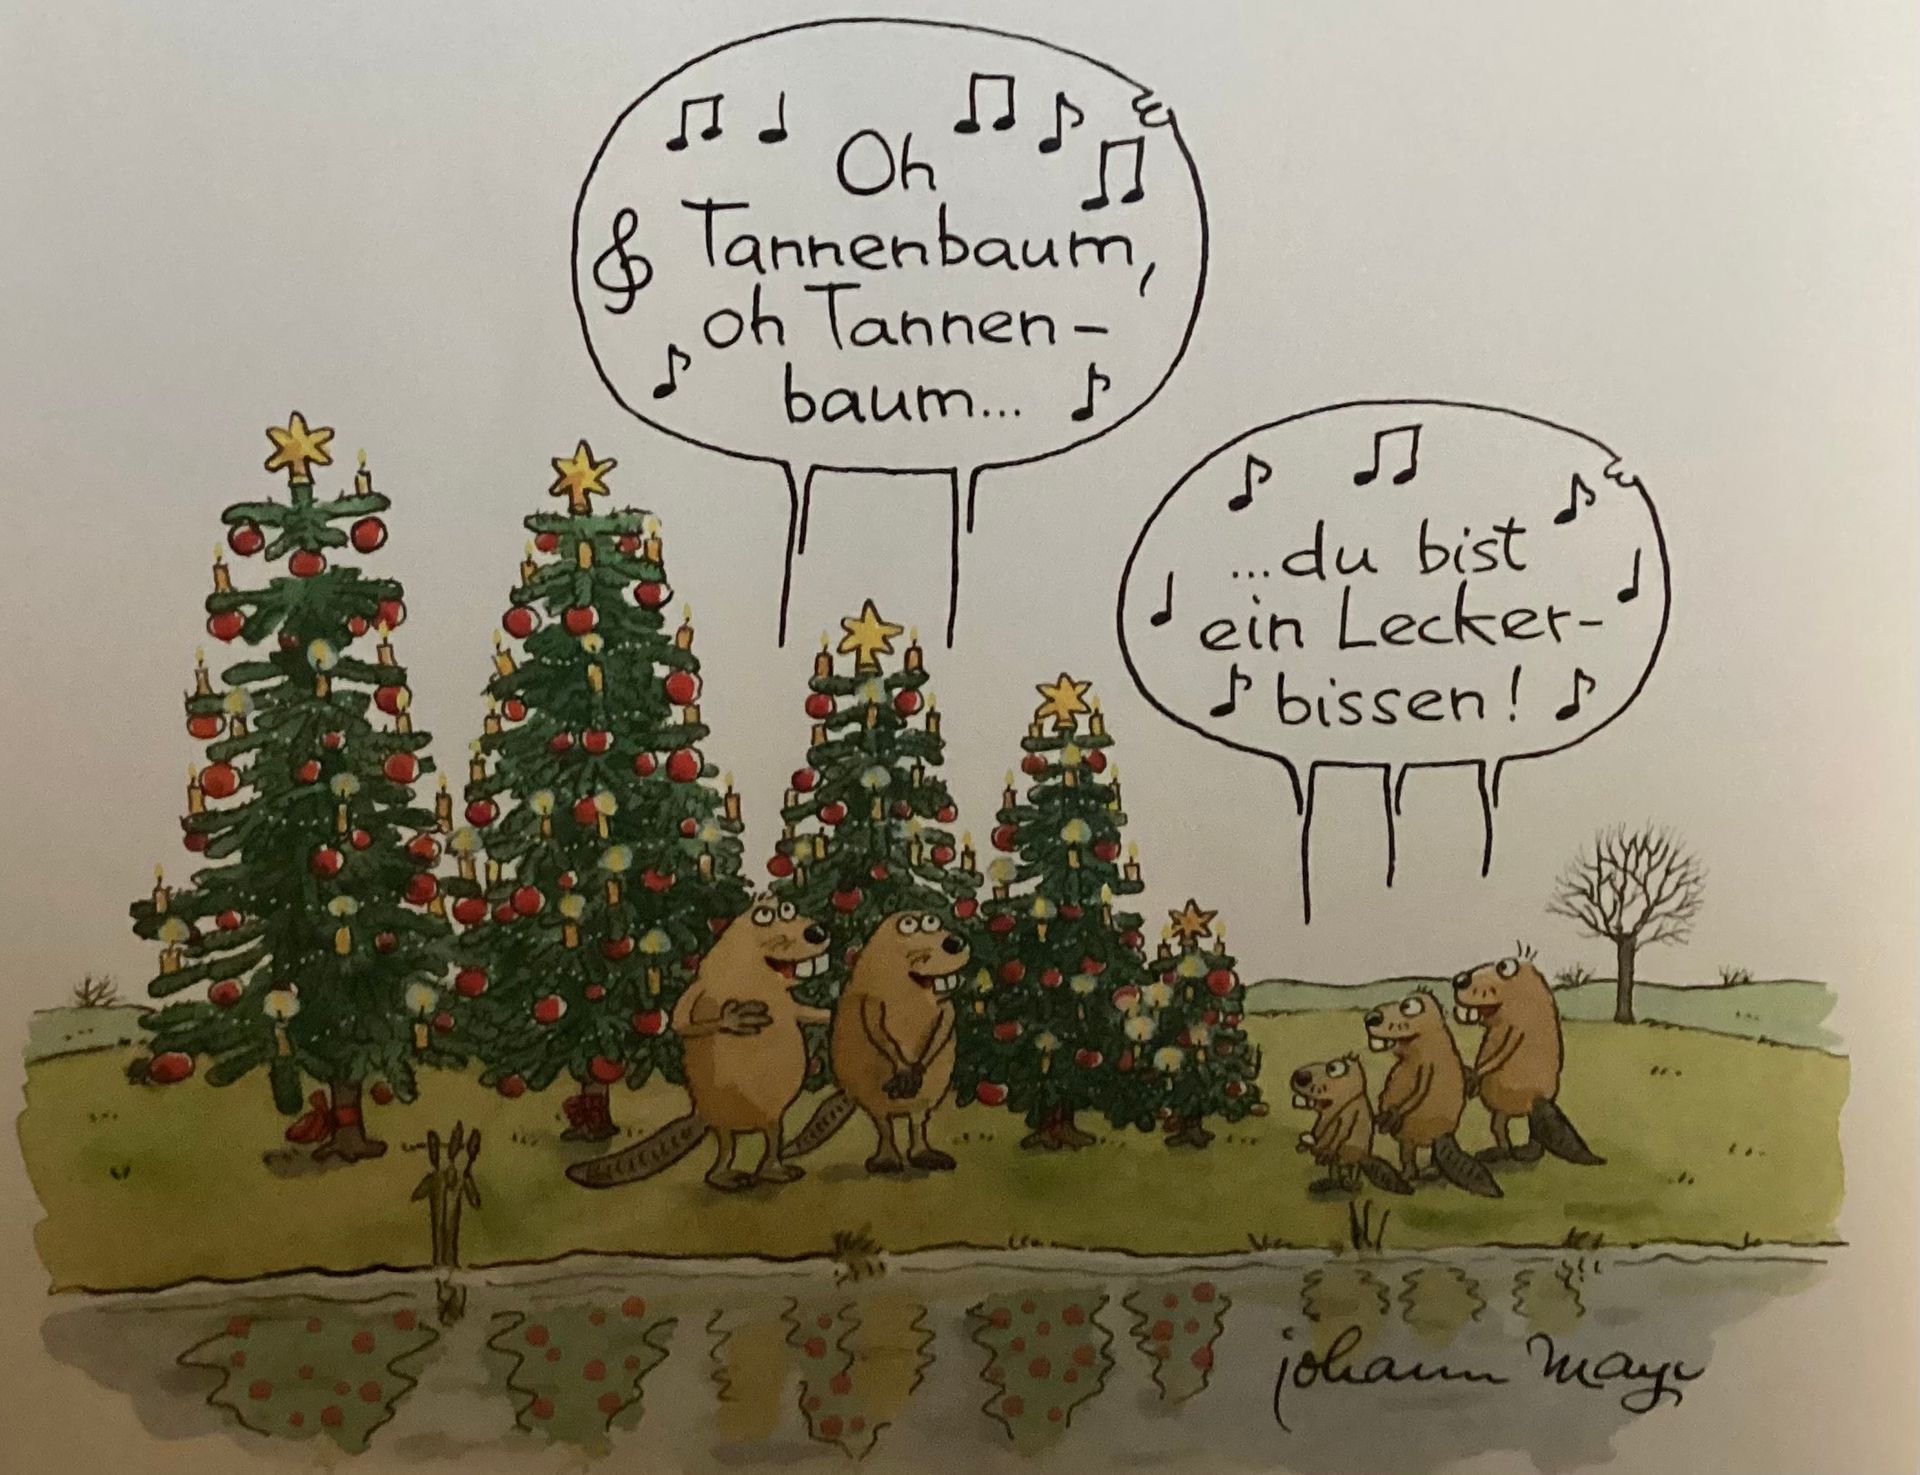 Oh
Tannenbaum,
oh Tannen-
baum...
...du bist
ein Lecker-
bissen!
johann mayr